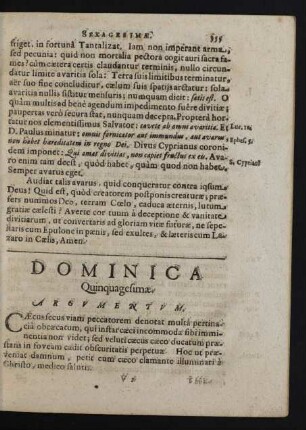 SEXAGESIMÆ. 335
friget. in fortunâ Tantalizat. Iam non imperant arma,
sed pecunia: quid non mortalia pectora cogit auri sacra fa-
mes? cùm cætera certis claudantur terminis, nullo circun-
datur limite avaritia sola: Terra suis limitibus terminatur,
aër suo fine concluditur, cælum suis spatijs arctatur: sola
avaritia nullâ sistitur mensurâ; numquam dicit: satis est. O
quàm multis ad bene agendum impedimento fuêre divitiæ;
pauperras verò secura stat, numquam decepta. Propterà hor-
tatur nos clementissimus Salvator: cavete ab omni avaritia. Et
D. Paulus minatur: omnis fornicator aut immundus, aut avarus
non habet hæreditatem in regno Dei. Divus Cyprianus coroni-
dem imponit: Qui amat divitias, non capiet fructus ex eis. Ava-
ro enim tam deest, quod habet, quàm quod non habet.
Semper avarus eget.
Luc. 12.
Ephes. 5.
S. Cyprian9
Audiat talis avarus, quid conqueratur contra ipsum
Deus! Quid est, quòd creatorem postponis creaturæ; præ-
fers nummos Deo, terram Cœlo, caduca æternis, lutum
gratiæ cœlesti? Averte cor tuum à deceptione & vanitate
divitiarum, ut convertaris ad gloriam vitæ futuræ, ne sepe-
liaris cum Epulone in pœnis, sed exultes, & læteris cum La-
zaro in Cælis, Amen.
DOMINICA
Quinquagesimæ.
ARGUMENTUM.
CÆcus secus viam peccatorem denotat multâ pertina-
ciâ obcæcatum, qui instar cæci incommoda sibi immi-
nentia non videt; sed veluti cæcus cæco ducatum præ-
stans in foveam cadit obscuritatis perpetuæ. Hoc ut præ-
veniat damnum, petit cum cæco clamante illuminari à
Christo, medico salutis.